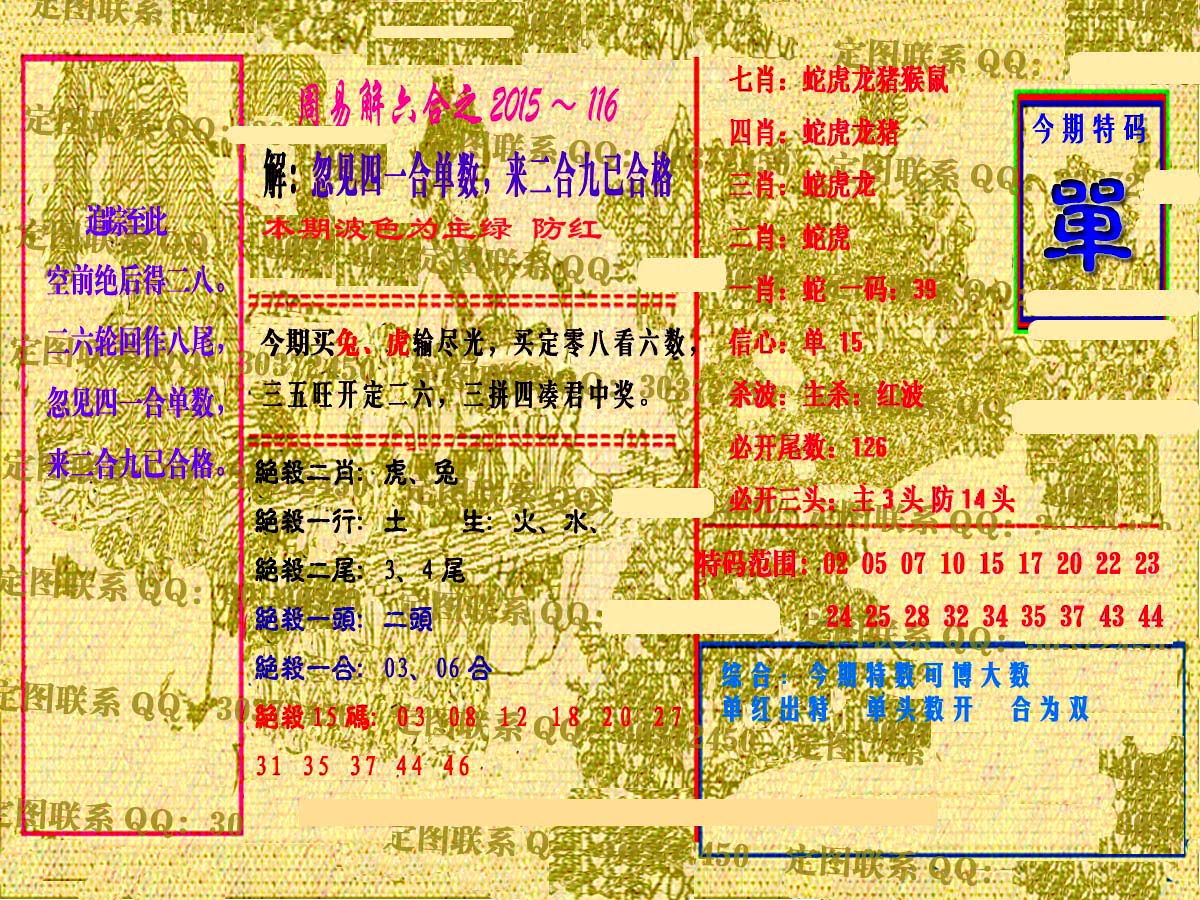 追踪至此
空前绝后得二八。
二六轮回作八尾，
忽见四一合单数，
来二合九已合格。
周易解六合之2015～116
解：忽见四一合单数，来二合九已合格
本期波色为主绿 防红
今期买兔、虎输尽光，买定零八看六数，
三五旺开定二六，三拼四凑君中奖。
絕殺二肖：虎、兔
絕殺一行：土 生：火、水、
絕殺二尾：3、4尾
絕殺一頭：二頭
絕殺一合：03、06合
絕殺15碼：03 08 12 18 20 27
31 35 37 44 46
七肖：蛇虎龙猪猴鼠
四肖：蛇虎龙猪
三肖：蛇虎龙
二肖：蛇虎
一肖：蛇 一码：39
信心：单 15
杀波：主杀：红波
必开尾数：126
必开三头：主3头防14头
今期特码
單
特码范围：02 05 07 10 15 17 20 22 23
24 25 28 32 34 35 37 43 44
综合：今期特数可博大数
单红出特，单头数开 合为双
定图联系 QQ：